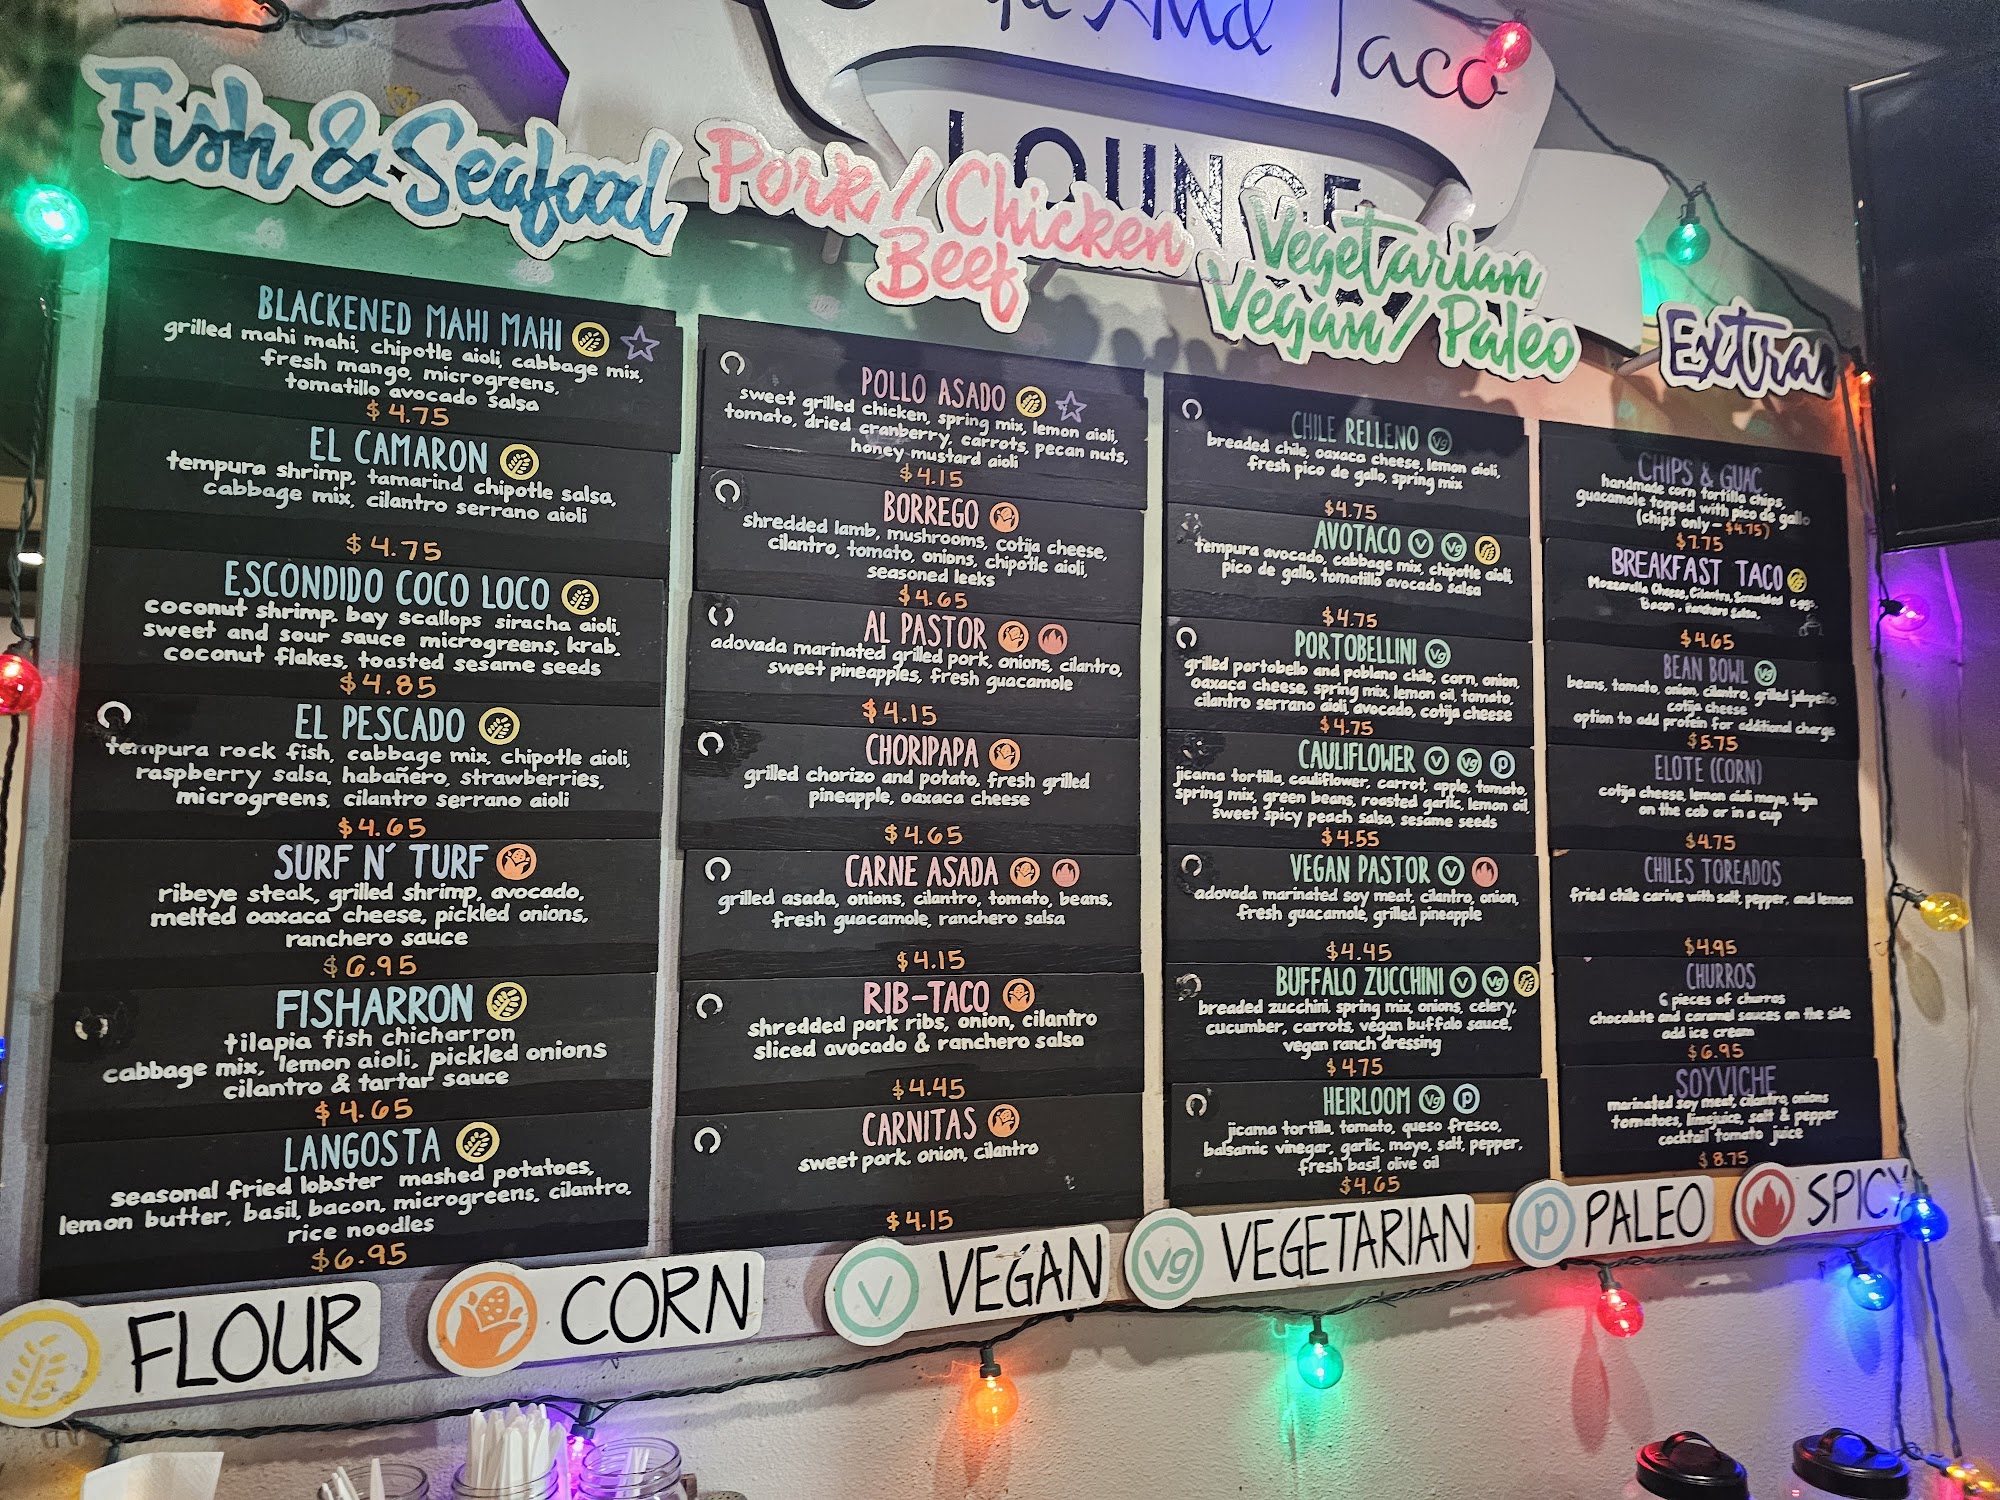 And Taco
LOUNGE
Fish & Seafood
BLACKENED MAHI MAHI
grilled mahi mahi, chipotle aioli, cabbage mix,
fresh mango, microgreens,
tomatillo avocado salsa
$4.75
EL CAMARON
tempura shrimp, tamarind chipotle salsa,
cabbage mix, cilantro serrano aioli
$4.75
ESCONDIDO COCO LOCO
coconut shrimp, bay scallops siracha aioli,
sweet and sour sauce microgreens, krab,
coconut flakes, toasted sesame seeds
$4.85
EL PESCADO
tempura rock fish, cabbage mix, chipotle aioli,
raspberry salsa, habañero, strawberries,
microgreens, cilantro serrano aioli
$4.65
SURF N' TURF
ribeye steak, grilled shrimp, avocado,
melted oaxaca cheese, pickled onions,
ranchero sauce
$6.95
FISHARRON
tilapia fish chicharron
cabbage mix, lemon aioli, pickled onions
cilantro & tartar sauce
$4.65
LANGOSTA
seasonal fried lobster mashed potatoes,
lemon butter, basil, bacon, microgreens, cilantro,
rice noodles
$6.95
Pork / Chicken
Beef
POLLO ASADO
sweet grilled chicken, spring mix, lemon aioli,
tomato, dried cranberry, carrots, pecan nuts,
honey mustard aioli
$4.15
BORREGO
shredded lamb, mushrooms, cotija cheese,
cilantro, tomato, onions, chipotle aioli,
seasoned leeks
$4.65
AL PASTOR
adovada marinated grilled pork, onions, cilantro,
sweet pineapples, fresh guacamole
$4.15
CHORIPAPA
grilled chorizo and potato, fresh grilled
pineapple, oaxaca cheese
$4.65
CARNE ASADA
grilled asada, onions, cilantro, tomato, beans,
fresh guacamole, ranchero salsa
$4.15
RIB-TACO
shredded pork ribs, onion, cilantro
sliced avocado & ranchero salsa
$4.45
CARNITAS
sweet pork, onion, cilantro
$4.15
Vegetarian
Vegan / Paleo
CHILE RELLENO Vg
breaded chile, oaxaca cheese, lemon aioli,
fresh pico de gallo, spring mix
$4.75
AVOTACO V Vg
tempura avocado, cabbage mix, chipotle aioli,
pico de gallo, tomatillo avocado salsa
$4.75
PORTOBELLINI Vg
grilled portobello and poblano chile, corn, onion,
oaxaca cheese, spring mix, lemon oil, tomato,
cilantro serrano aioli, avocado, cotija cheese
$4.75
CAULIFLOWER V Vg P
jicama tortilla, cauliflower, carrot, apple, tomato,
spring mix, green beans, roasted garlic, lemon oil,
sweet spicy peach salsa, sesame seeds
$4.55
VEGAN PASTOR V
adovada marinated soy meat, cilantro, onion,
fresh guacamole, grilled pineapple
$4.45
BUFFALO ZUCCHINI V Vg
breaded zucchini, spring mix, onions, celery,
cucumber, carrots, vegan buffalo sauce,
vegan ranch dressing
$4.75
HEIRLOOM Vg P
jicama tortilla, tomato, queso fresco,
balsamic vinegar, garlic, mayo, salt, pepper,
fresh basil, olive oil
$4.65
Extras
CHIPS & GUAC
handmade corn tortilla chips,
guacamole topped with pico de gallo
(chips only - $4.75)
$7.75
BREAKFAST TACO
Mozzarella Cheese, Cilantro, Scrambled eggs,
Bacon, Ranchero Salsa.
$4.65
BEAN BOWL Vg
beans, tomato, onion, cilantro, grilled jalapeño,
cotija cheese
option to add protein for additional charge
$5.75
ELOTE (CORN)
cotija cheese, lemon aioli mayo, tajin
on the cob or in a cup
$4.75
CHILES TOREADOS
fried chile carive with salt, pepper, and lemon
$4.95
CHURROS
6 pieces of churros
chocolate and caramel sauces on the side
add ice cream
$6.95
SOYVICHE
marinated soy meat, cilantro, onions
tomatoes, limejuice, salt & pepper
cocktail tomato juice
$8.75
FLOUR
CORN
V VEGAN
Vg VEGETARIAN
P PALEO
SPICY